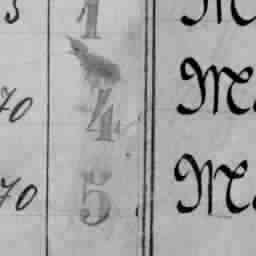 1 M
70 4 M.
70 5 M.